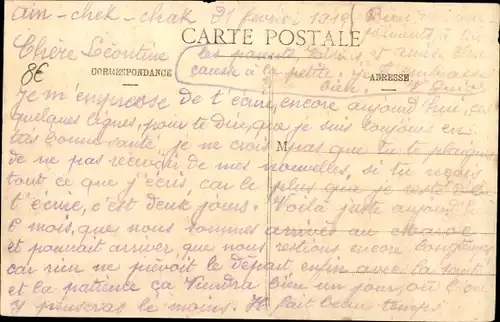 Aïn - chek - chak 21 février 1918
CARTE POSTALE
Chère Léontine
CORRESPONDANCE
ADRESSE
8€
Bien
les parents, et amis
cause à la petite. je t'embrasse
bien.
Je m'empresse de t'écrire, encore aujourd'hui, ces
quelques lignes, pour te dire, que je suis toujours en
très bonne santé, je ne crois pas que tu te plaignes
M
de ne pas recevoir de mes nouvelles, si tu reçois
tout ce que j'écris, car le plus que je reste de
t'écrire, c'est deux jours. Voilà juste aujourd'hui
6 mois, que nous sommes arrivés au Maroc
et pourrait arriver que nous restions encore longtemps
car rien ne prévoit le départ, enfin avec la santé
et la patience ça viendra bien un jour, où l'on
y pensera le moins. Il fait beau temps